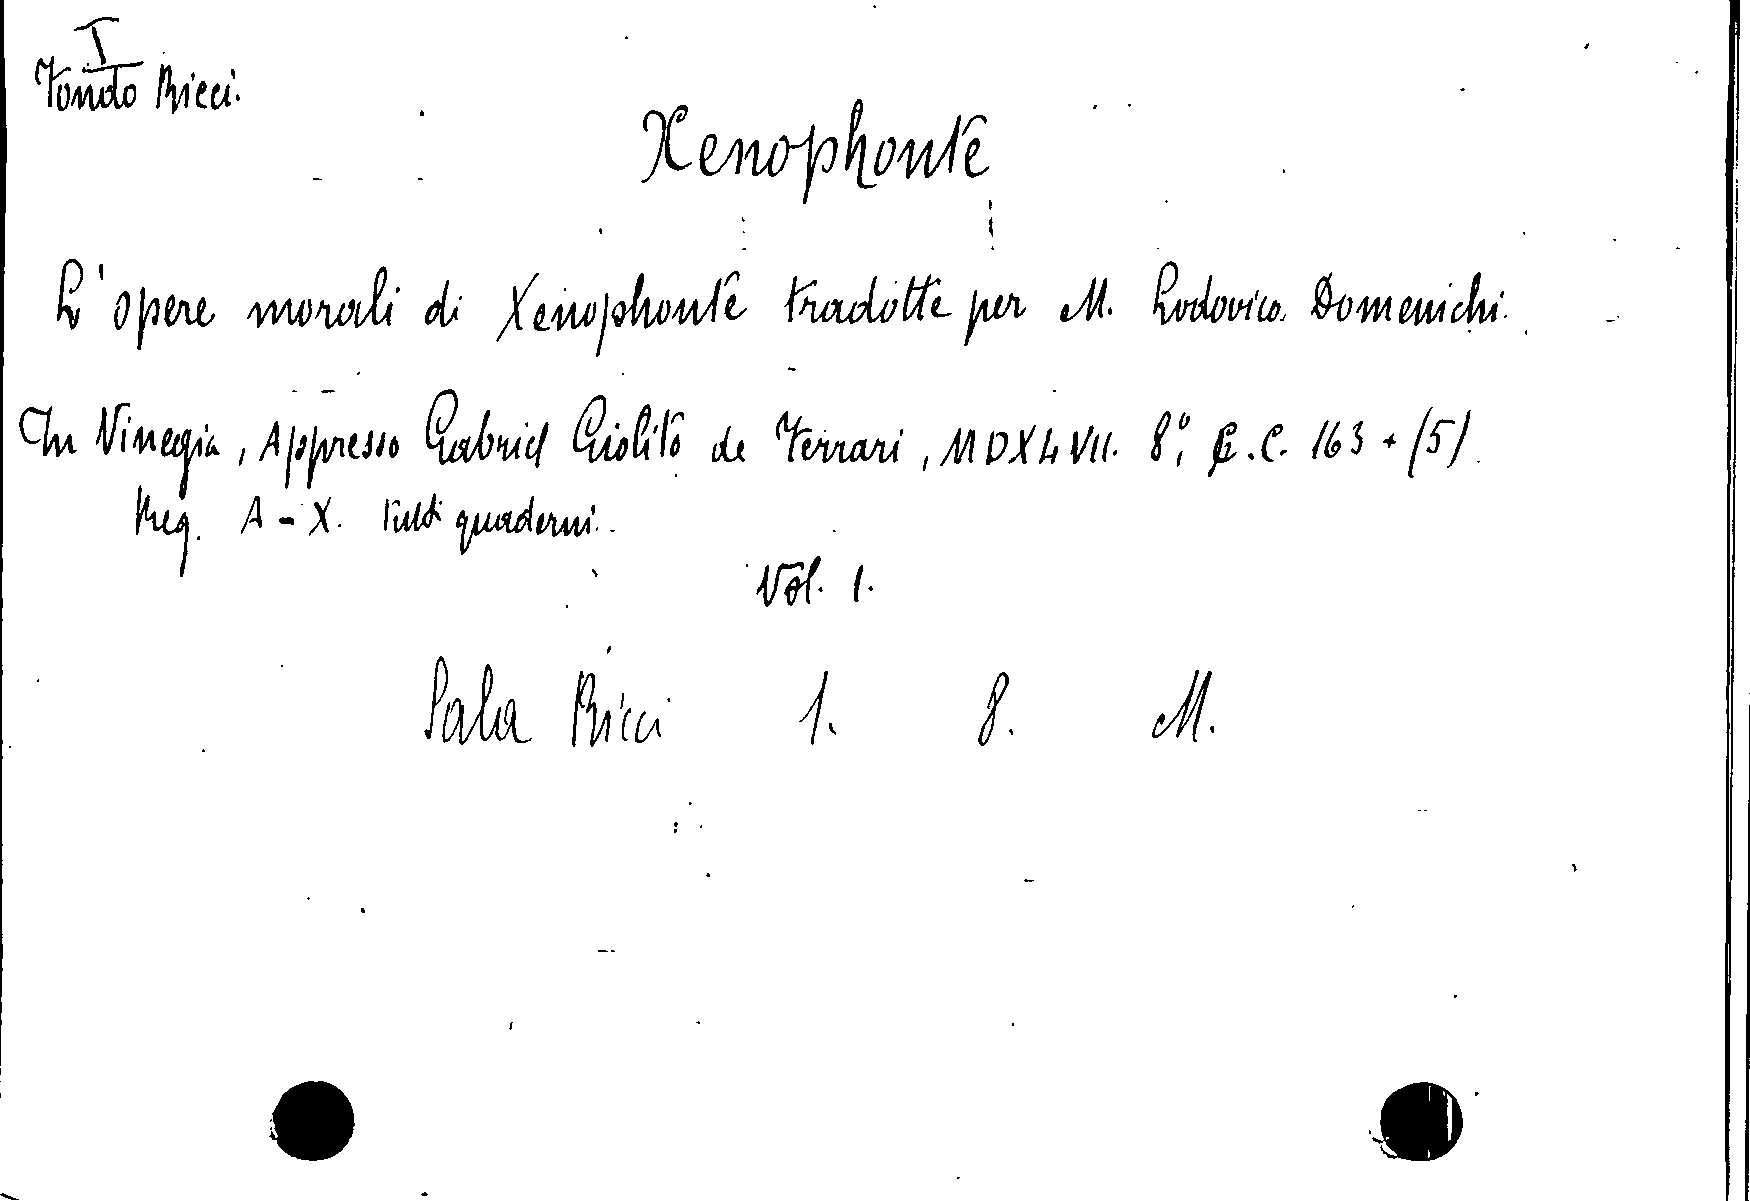 I
Fondo Ricci.
Xenophonte
L'opere morali di Xenophonte tradotte per M. Lodovico Domenichi.
In Vinegia, Appresso Gabriel Giolito de Ferrari, MDXLVII. 8°, C.C. 163 + (5)
Reg. A - X. Tutti quaderni.
Vol. 1.
Sala Ricci 1. 8. M.